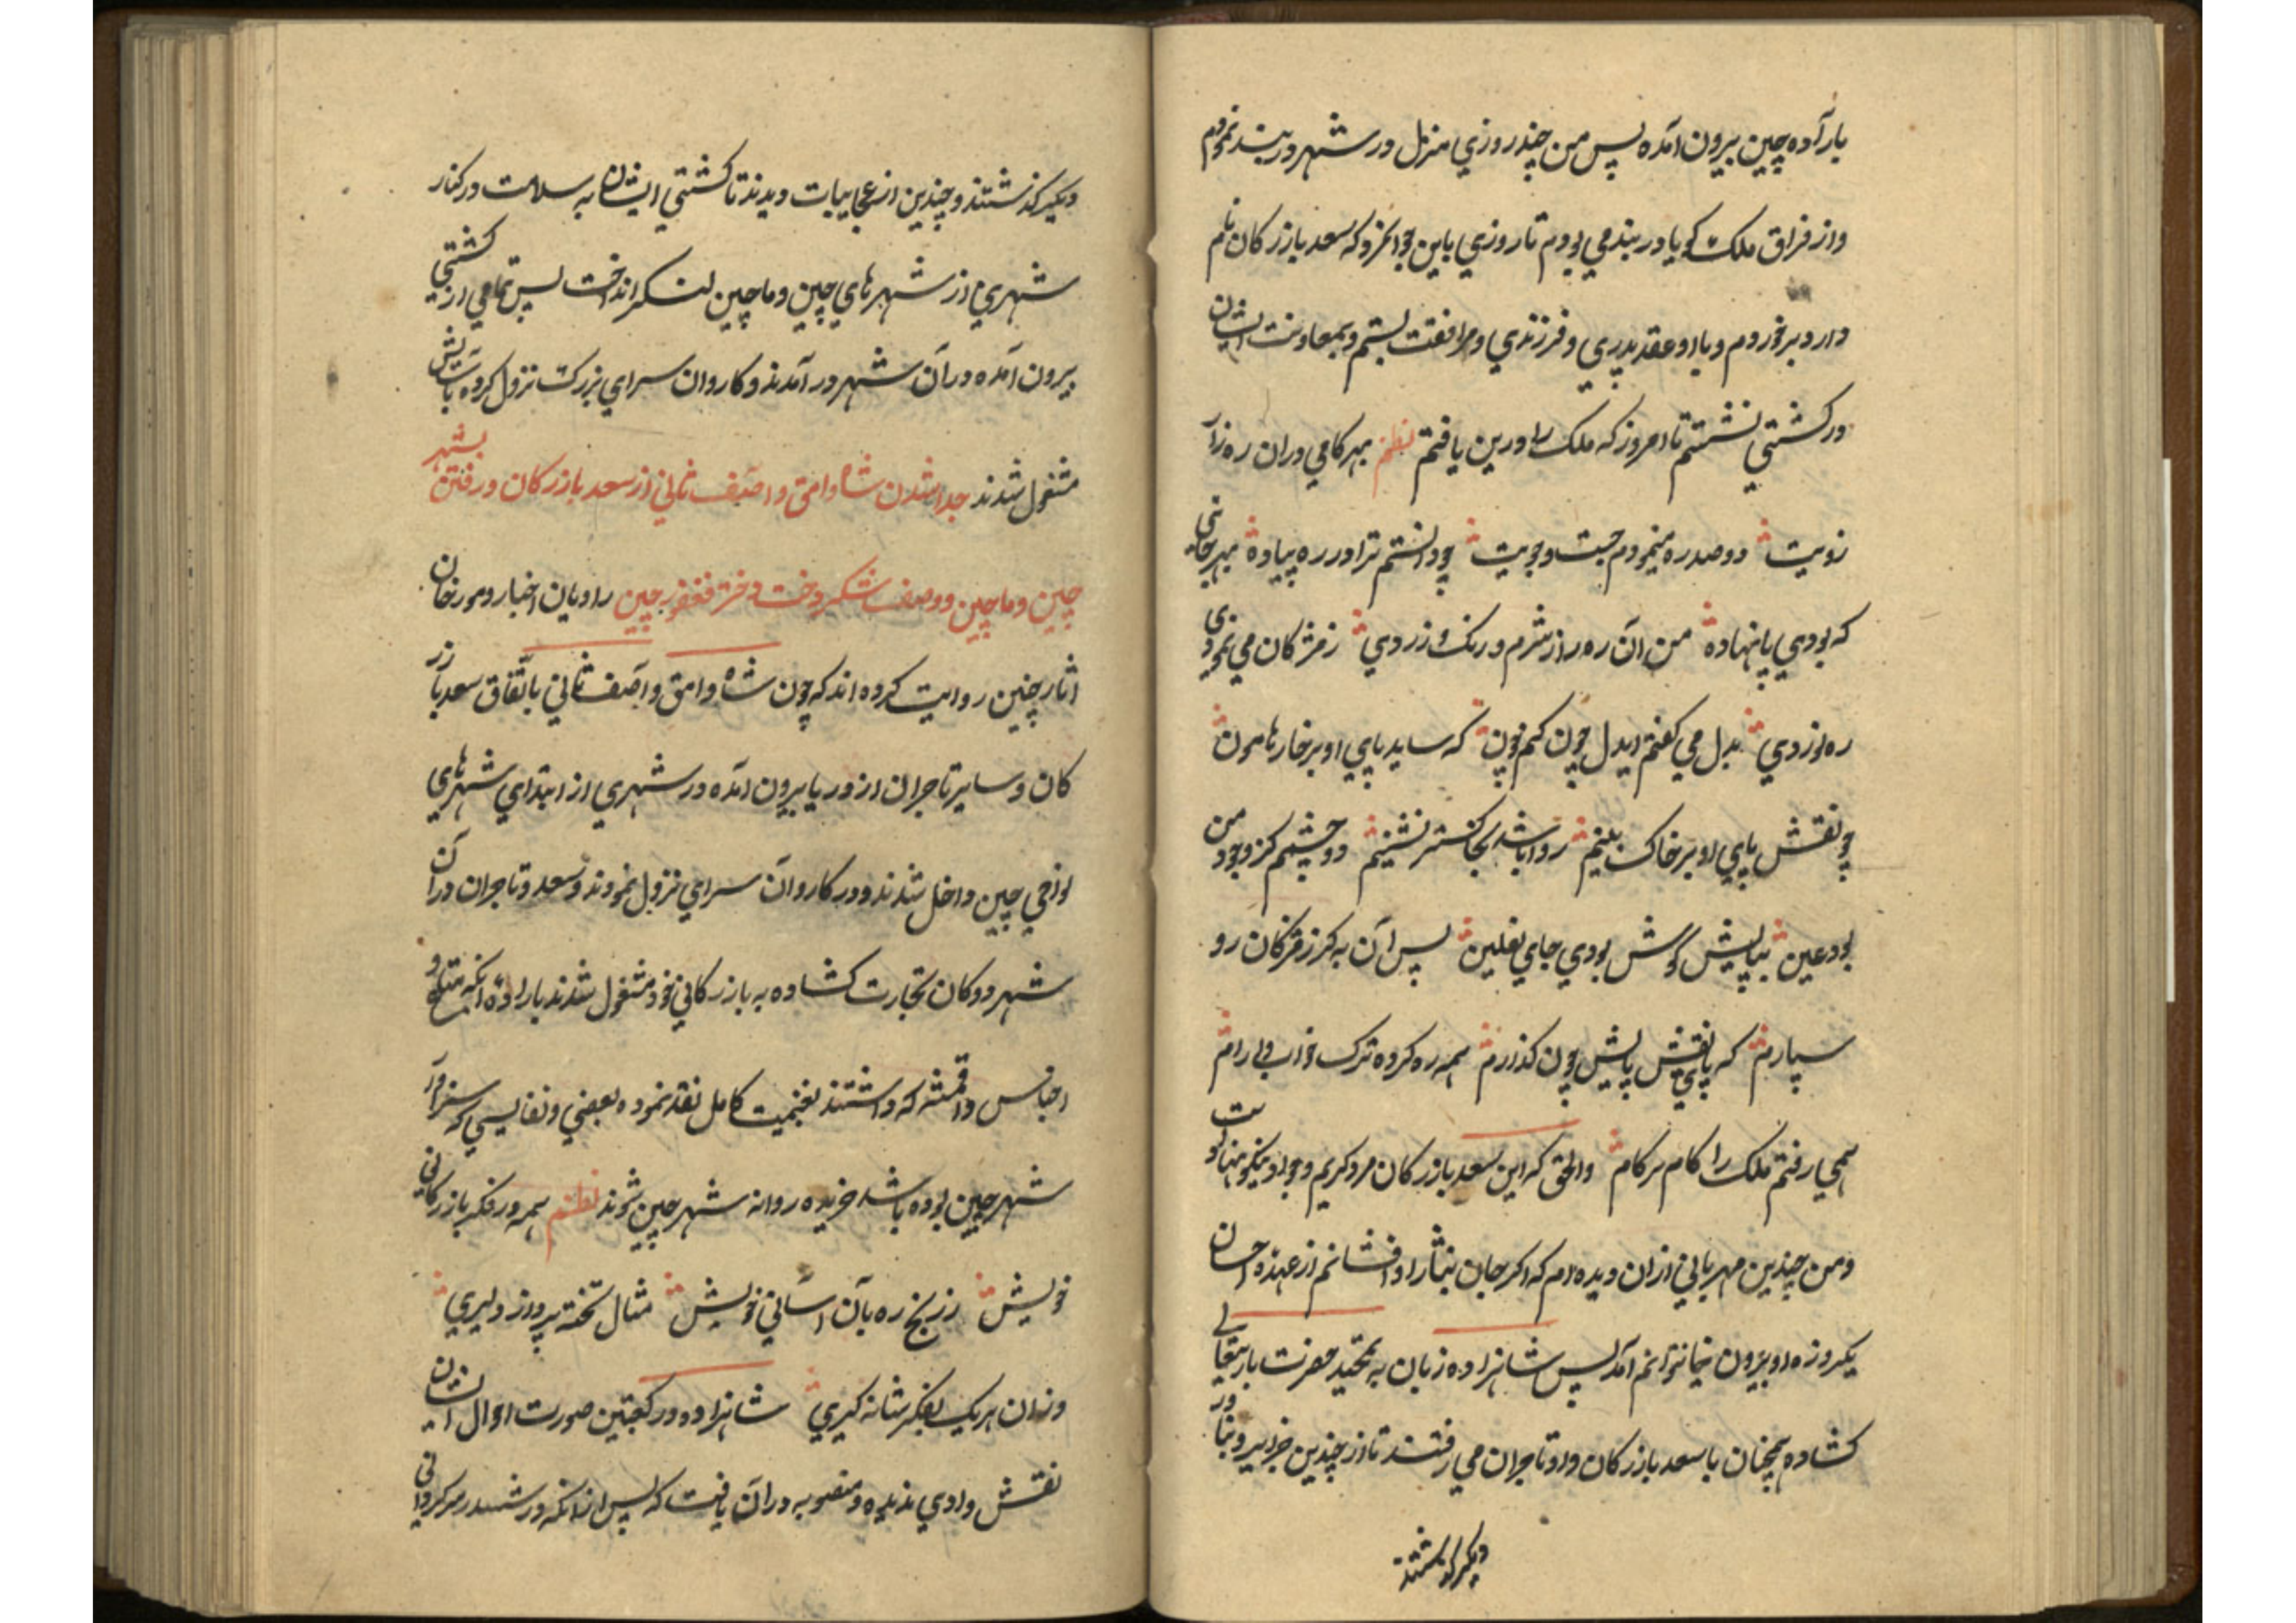 باراده چین بیرون آمده پس من چند روزی منزل در شهر دربند نمودم
و از فراق ملک گویا در بند می بودم تا روزی باین جوانمرد که سعد بازرکان نام
دارد برخوردم و با او عقد پدری و فرزندی و مرافقت بستم و بمعاونت ایشان
در کشتی نشستم تا امروز که ملک را درین یافتم نظم بهر کامی دران ره ز ار
زویت دو صد ره مینمودم جست و جویت چو دانستم ترا در ره پیاده بهر جائی
که بودی پا نهاده من آن ره را ز شرم و رنک زردی ز مژکان می نمودی
ره نوردی بدل می گفتم ایدل چون کنم چون که ساید پای او بر خار هامون
چو نقش پای او بر خاک بینم روا باشد بخاکستر نشینم دو چشمم کز وجود من
بود عین بپایش کوش بودی جای نعلین پس آن به کز مژکان رو
سپارم که پا بنقش پایش چون کذارم همه ره کرده ترک خواب و آرام
همی رفتم ملک را کام بر کام والحق که این سعد بازرکان مرد کریم و جواد نیکو نهاد است
و من چندین مهربانی ازان دیده ام که اکر جان نثار او افشانم از عهده احسان
یکروزه او بیرون نمیتوانم آمد پس شاهزاده زبان به تحمید حضرت باریتعالی
کشاده همچنان با سعد بازرکان و تاجران می رفتند تا از چندین جزایر و بنادر
دیکر کذشتند
دیکر کذشتند و چندین از عجایبات دیدند تا کشتی ایشان به سلامت در کنار
شهری از شهرهای چین و ماچین لنکر انداخت پس تمامی از کشتی
بیرون آمده در آن شهر در آمدند و کاروان سرای بزرک نزول کرده باسایش
مشغول شدند جدا شدن شاه وامق و آصف ثانی از سعد بازرکان و رفتن بشهر
چین و ماچین و وصف شکر دخت دختر فغفور چین راویان اخبار و مورخان
آثار چنین روایت کرده اند که چون شاه وامق و آصف ثانی باتفاق سعد بازر
کان و سایر تاجران از دریا بیرون آمده در شهری از ابتدای شهرهای
نواحی چین داخل شدند و در کاروان سرای نزول نمودند و سعد و تاجران در آن
شهر دوکان تجارت کشاده به بازرکانی خود مشغول شدند باراده آنکه متاع و
اجناس و اقمشه که داشتند بغنیمت کامل نقد نموده بعضی و نفایسی که سزاوار
شهر چین بوده باشد خریده روانه شهر چین شوند نظم همه در فکر بازرکانی
خویش ز رنج ره بآن آسانی خویش مثال تخته پرواز دلیری
و زان هر یک بفکر شانه کیری شاهزاده در کعبتین صورت احوال ایشان
نقش وادی ندیده و منصوبه در آن یافت که پس از آنکه در ششدر سرکردانی